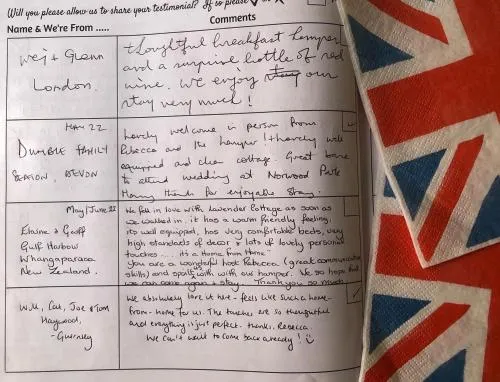 Will you please allow us to share your testimonial? If so please
Name & We're From .....
Comments
Wej + Glenn
London.
thoughtful breakfast hamper
and a surprise bottle of red
wine. We enjoy our
stay very much!
May 22
DUMBLE FAMILY
SEATON, DEVON
Lovely welcome in person from
Rebecca and the hamper! + lovely well
equipped and clean cottage. Great base
to attend wedding at Norwood Park
Many thanks for enjoyable stay.
May/June 22
Elaine + Geoff
Gulf Harbour
Whangaparaoa
New Zealand.
We fell in love with Lavender Cottage as soon as
we walked in. it has a warm friendly feeling,
its well equipped, has very comfortable beds, very
high standards of decor & lots of lovely personal
touches .... it's a "Home from Home"
You are a wonderful host Rebecca (great communication
skills) and spoilt us with our hamper. We so hope that
we can come again + stay. Thank you so much
Will, Cat, Joe + Tom
Haywood,
- Guernsey
We absolutely love it here - feels like such a home-
from-home for us. The touches are so thoughtful
and everything is just perfect. thanks, Rebecca.
We can't wait to come back already!